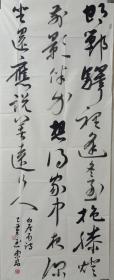 邯郸驿里逢冬至抱膝灯
前影伴身想得家中夜深
坐还应说著远行人
白居易诗